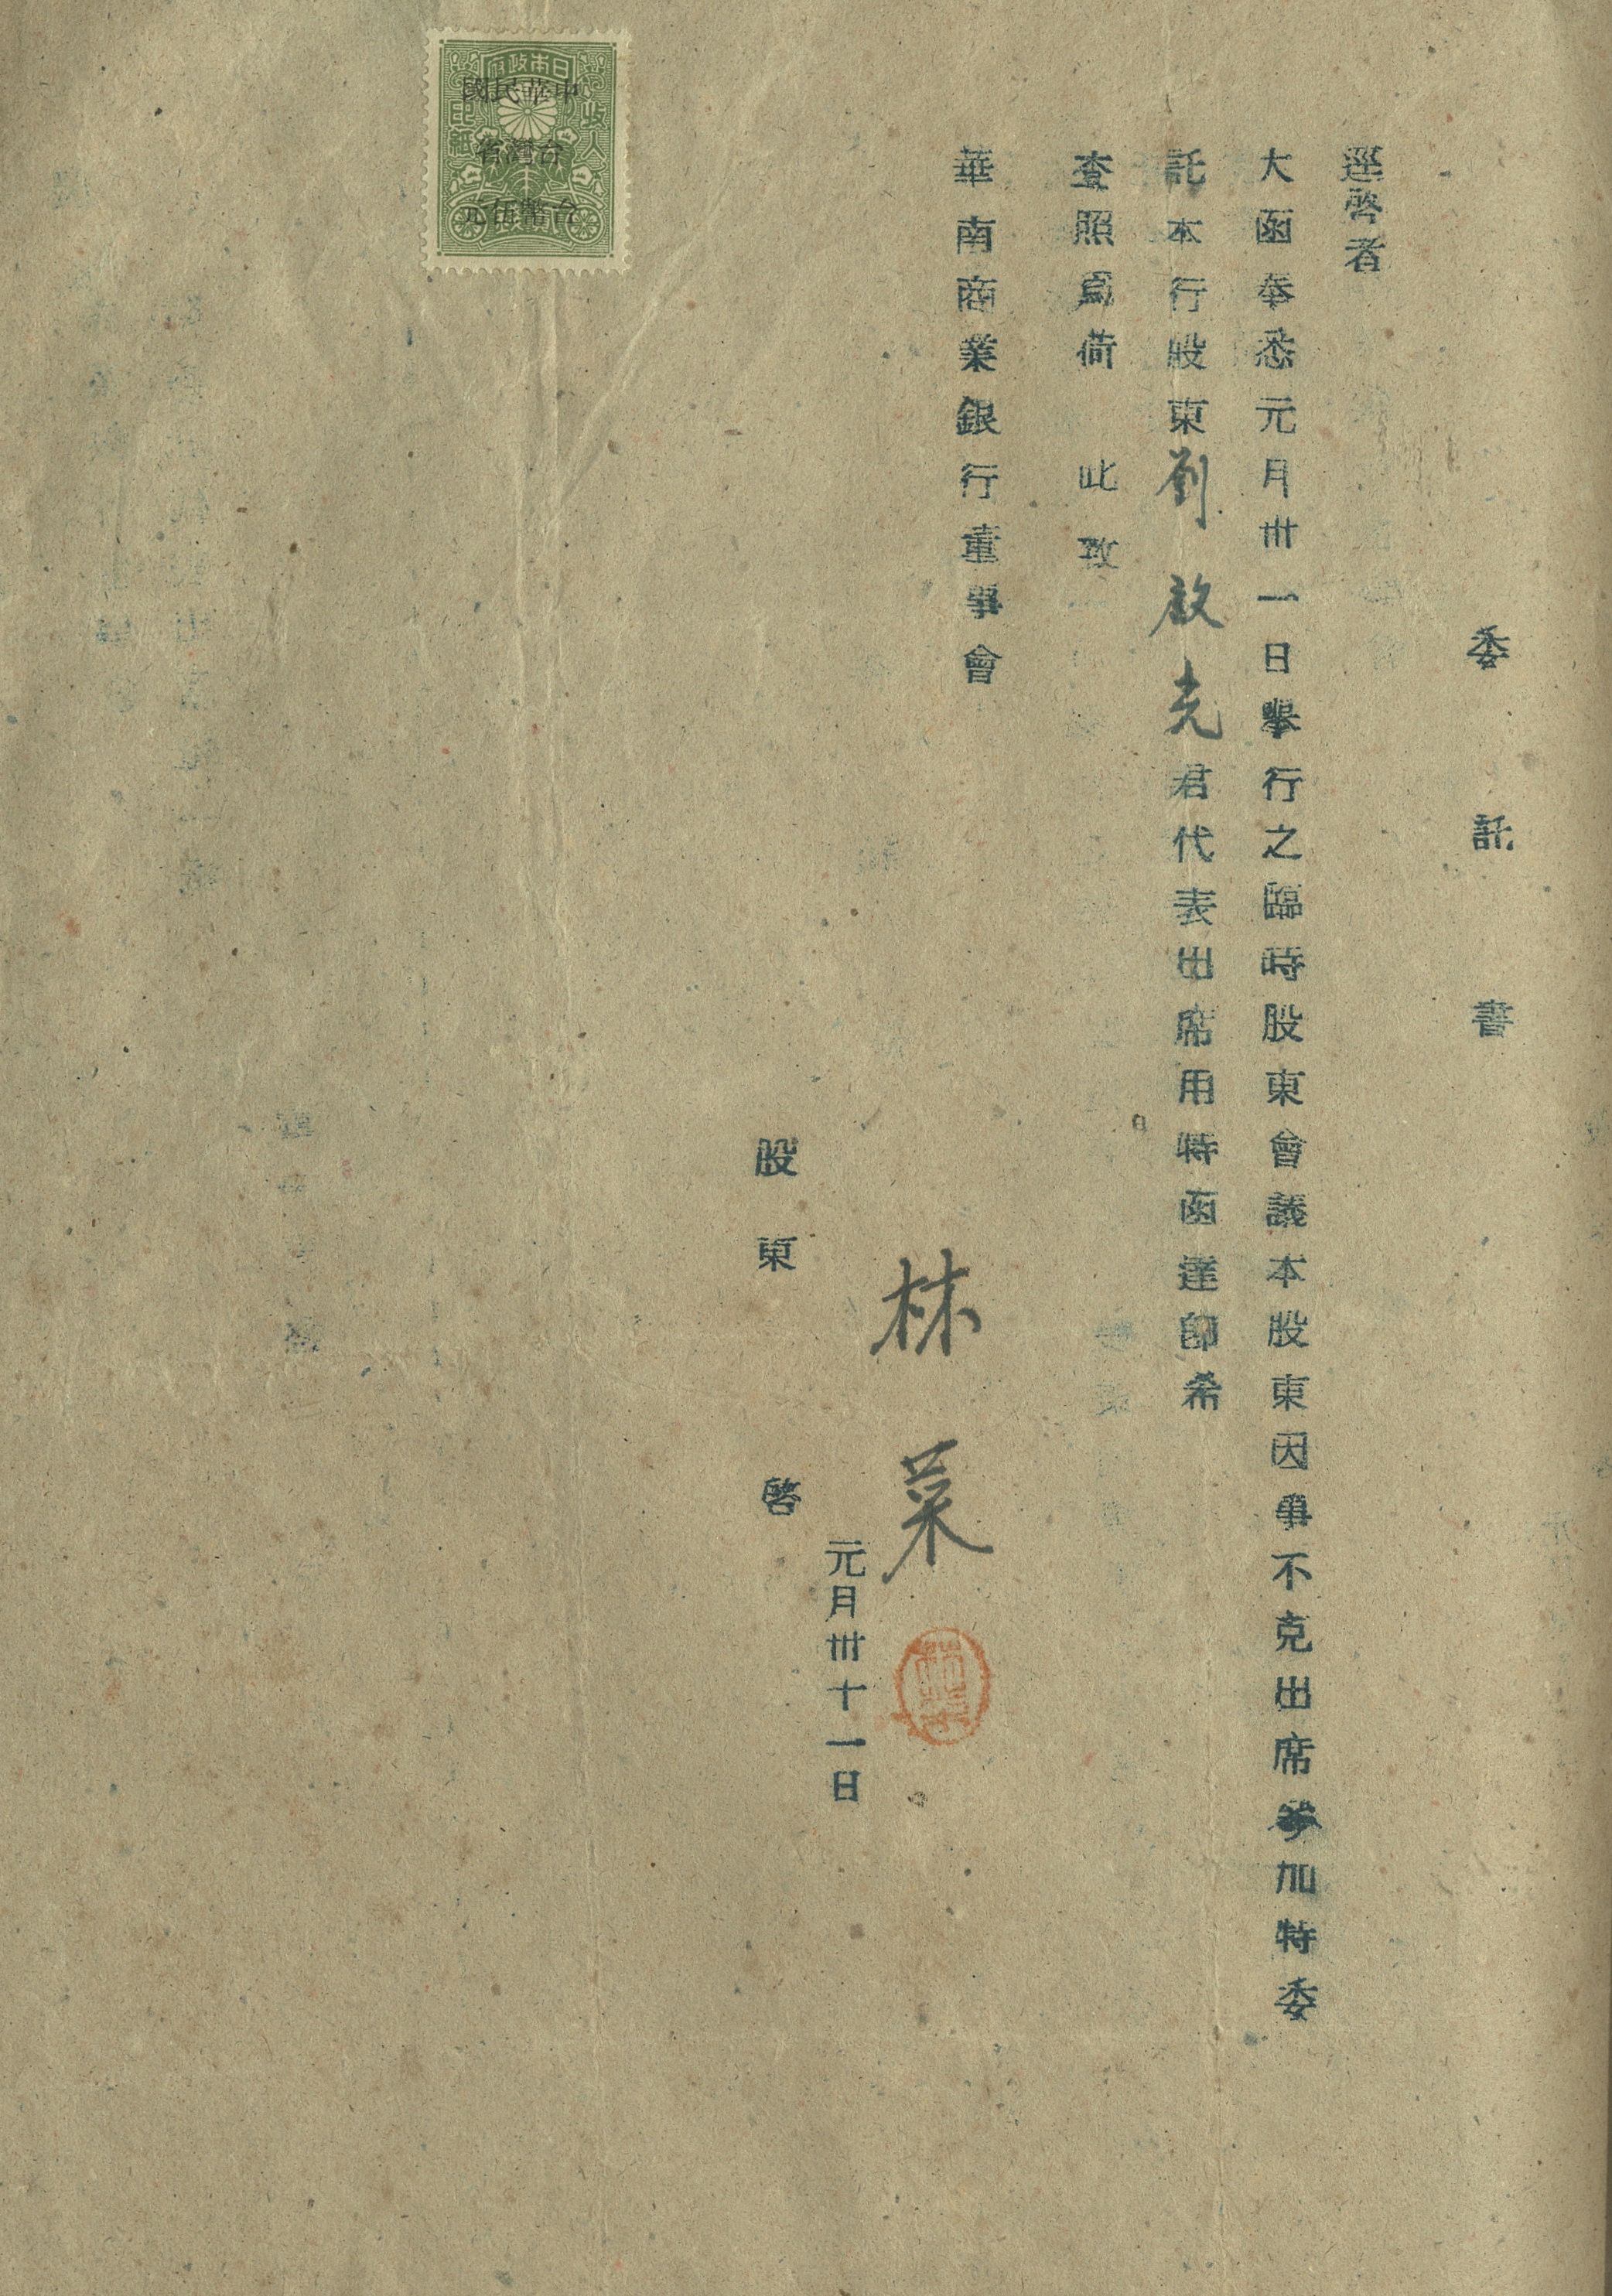 委託書
逕啓者
大函奉悉元月卅一日舉行之臨時股東會議本股東因事不克出席參加特委
託本行股東劉啟光君代表出席用特函達即希
查照爲荷　此致
華南商業銀行董事會
林菜
元月卅十一日
股東　啓
日本政府
收入印紙
中華民國
台灣省
台幣伍元